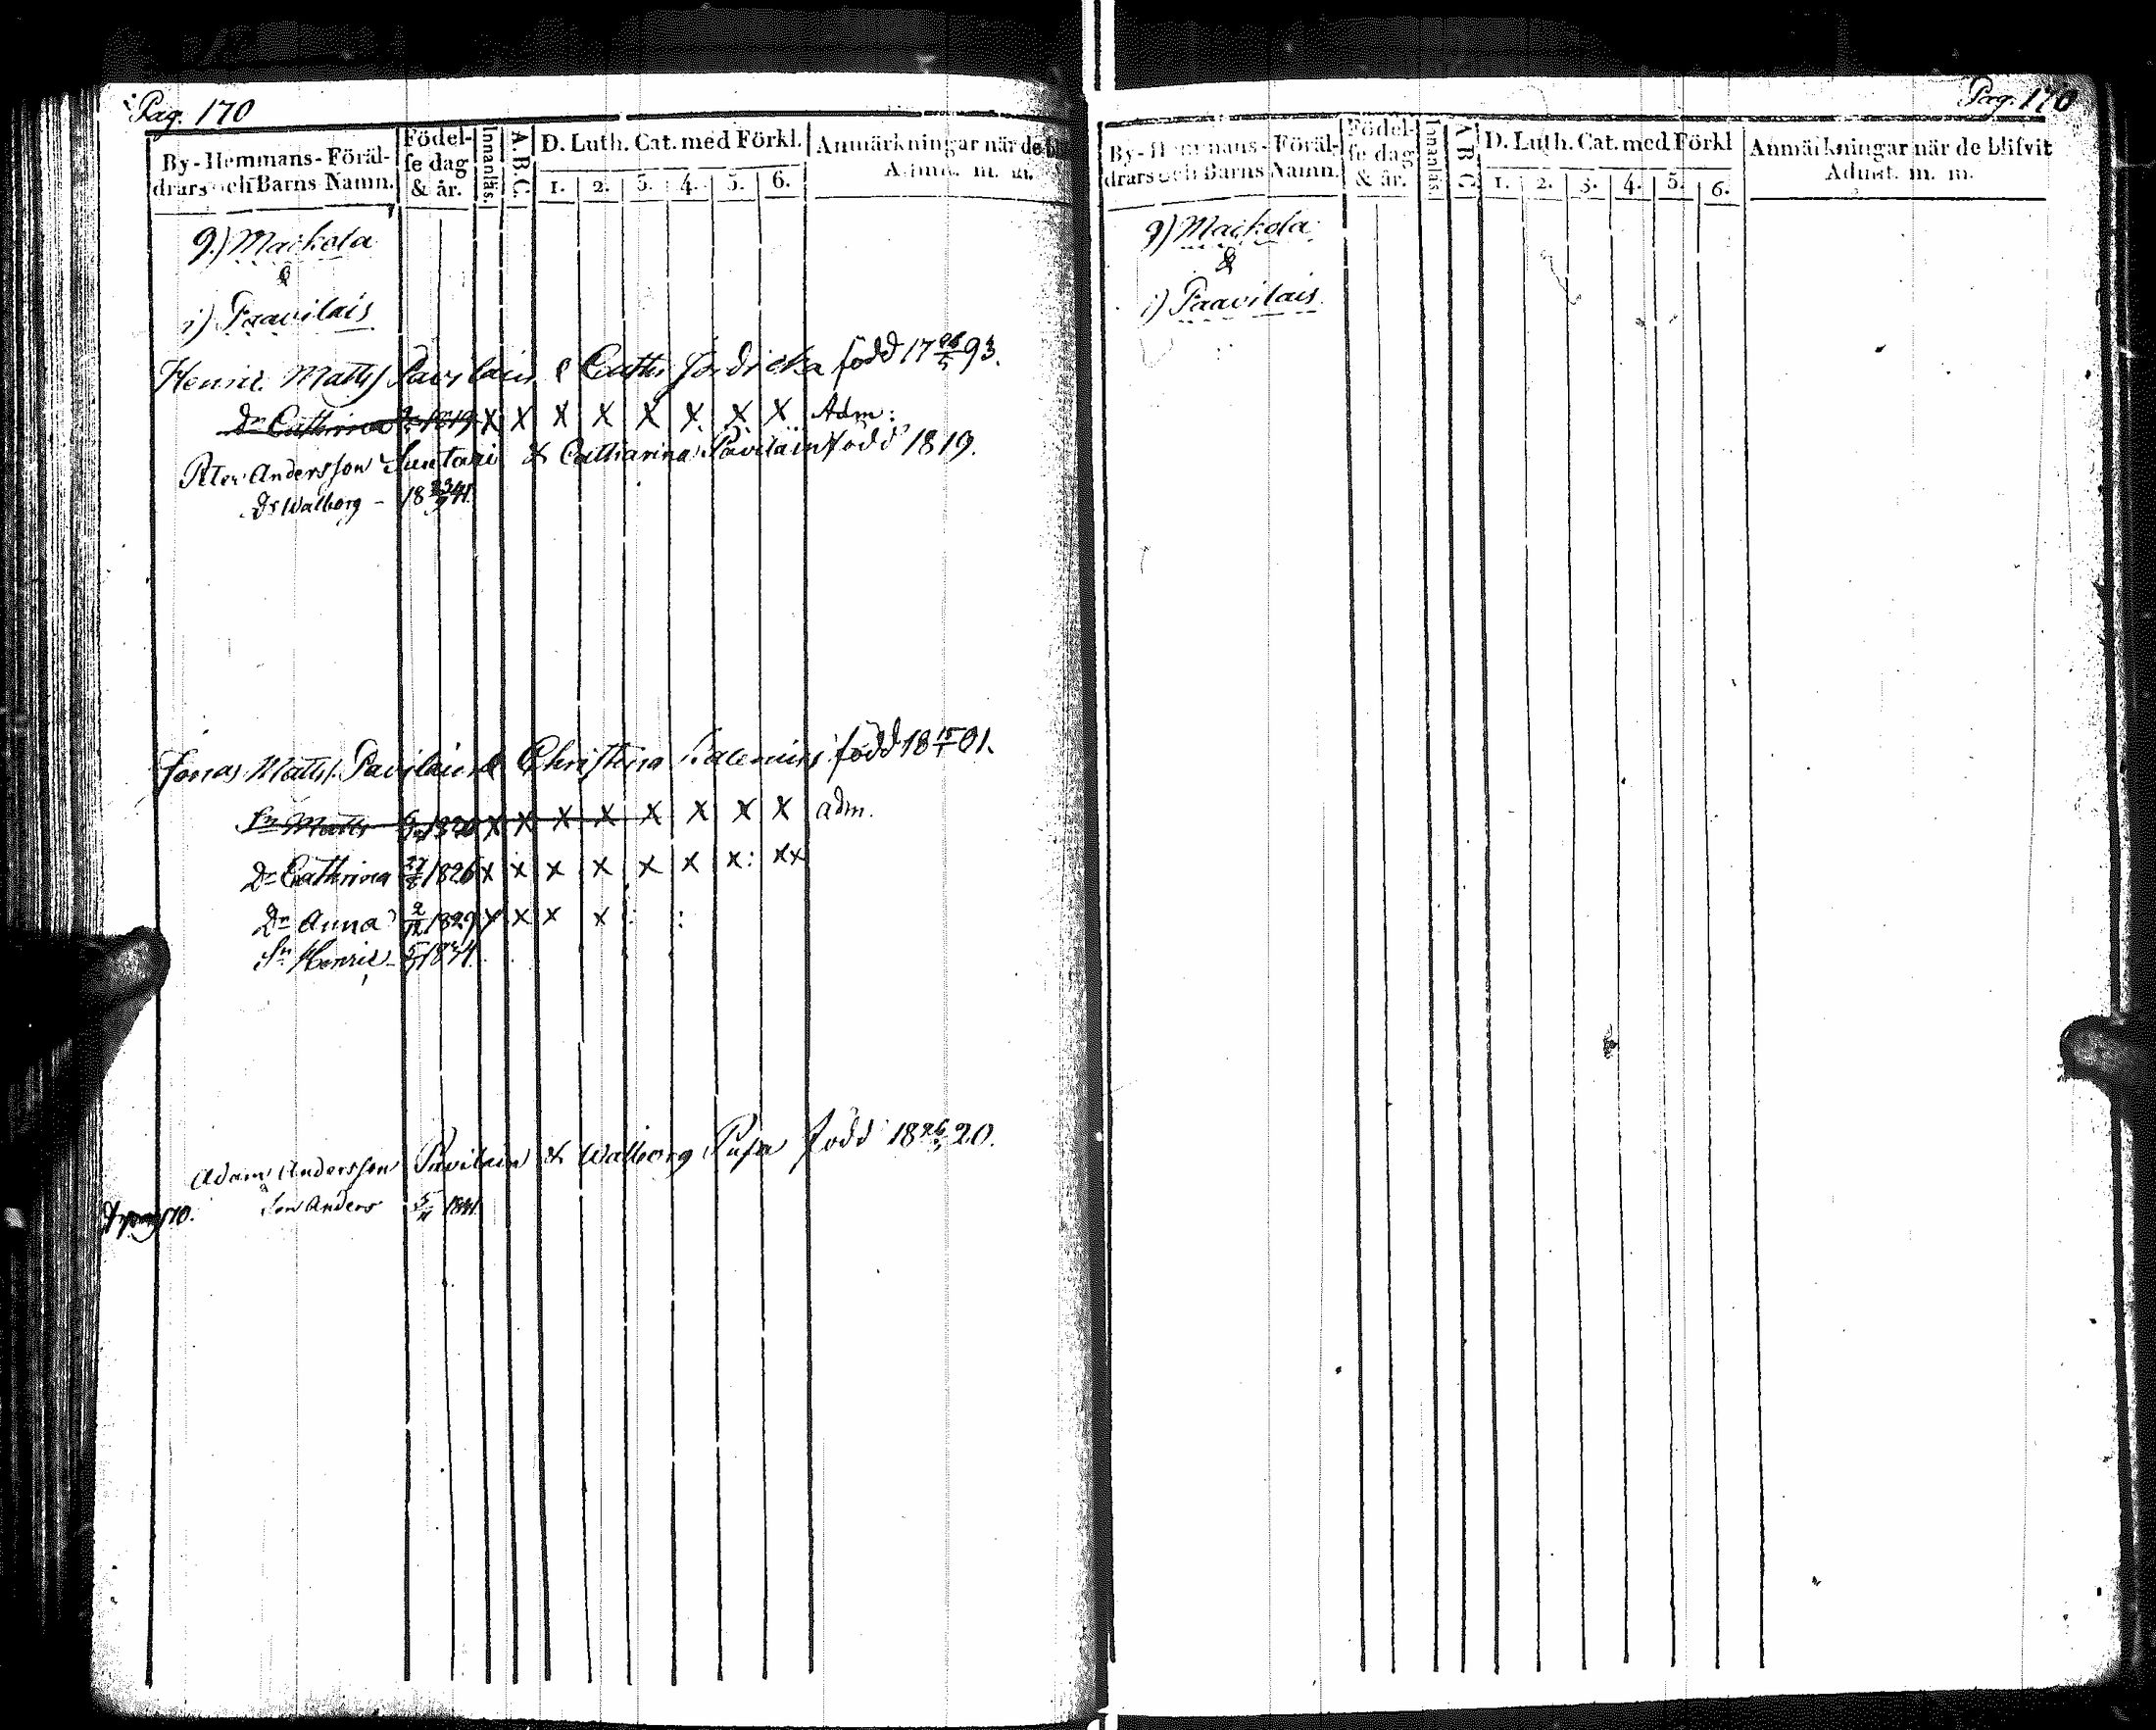 Pag. 170
By-Hemmans-Föräl-
drars och Barns Namn.
Födel-
se dag
& år.
Innanläs.
A.B.C.
D. Luth. Cat. med Förkl.
1. 2. 3. 4. 5. 6.
Anmärkningar när de bli
Admit. m. m.
9.) Maikola
&
i) Paavilais
Henric Matts Pavilain & Cath: född 17 26/5 93.
Dr Cathrina 1819 X X X X X X X X Adm:
Peter Andersson Suntari & Catharina Pavilain född 1819.
Dr Walborg - 18 41.
Jonas Matts. Pavilain & Christina född 18 15/1 01.
Sn Matts 1820 X X X X X X X X adm.
Dr Cathrina 27/8 1826 X X X X X X X: XX
Dr Anna 2/12 1829 X X X X : :
Sn Henric
Adam Andersson Pavilain & Walborg Pusa född 18 26/ 20.
Son Anders 5/11 1841.
Pag. 170
By-Hemmans-Föräl-
drars och Barns Namn.
Födel-
se dag
& år.
Innanläs.
A B C
D. Luth. Cat. med Förkl
1. 2. 3. 4. 5. 6.
Anmärkningar när de blifvit
Admit. m. m.
9) Maikola
&
i) Paavilais.